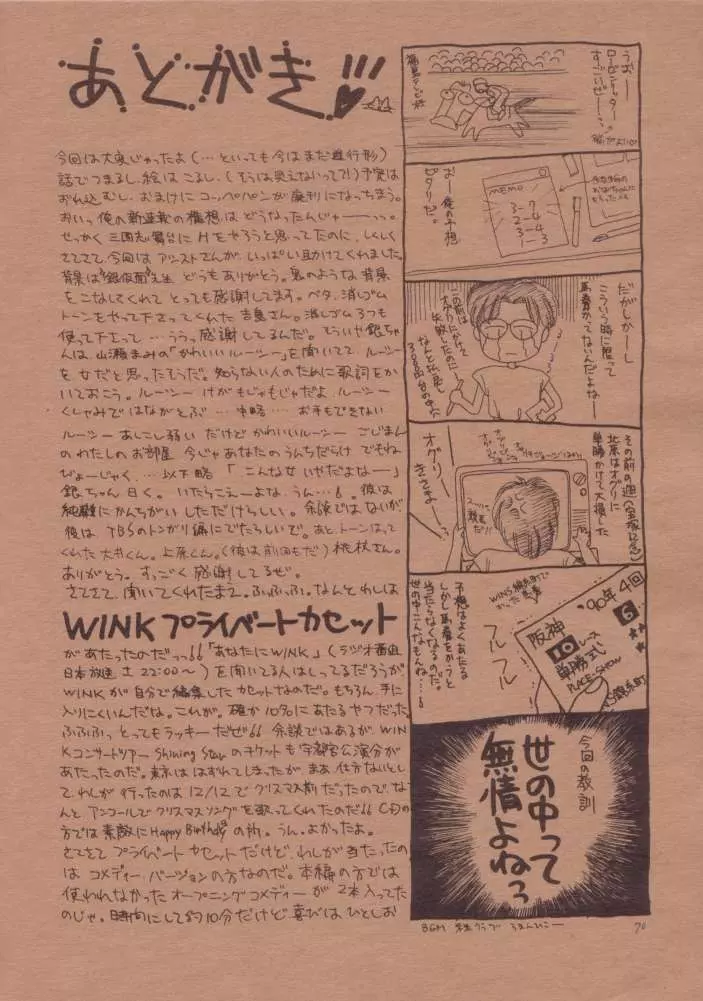 あとがき!!!
今回は大変じゃったよ(…といっても今はまだ進行形)
話でつまるし、絵はこるし、(そうは見えないって?!)予定は
おれ込むし、おまけにコッペパンが廃刊になっちまう。
おいっ俺の新連載の構想はどうなったんじゃーーっっ。
せっかく三国志舞台にHをやろうと思ってたのに、しくしく
さてさて、今回はアシストさんが、いっぱい助けてくれました。
背景は"銀仮面"先生 どうもありがとう。鬼のような背景
をこなしてくれて とっても感謝してます。ベタ、消しゴム
トーンをやって下さってくれた 吉島さん。消しゴム3つも
使って下さって…ううっ感謝してるんだ。そういや銀ちゃ
んは、山瀬まみの「かわいいルーシー」を聞いてて ルーシー
を女だと思ったそうだ。知らない人のために歌詞をか
いておこう。ルーシー けがもじゃもじゃだよ ルーシー
くしゃみではながとぶ …中略… お手もできない
ルーシー あしこし弱い だけど かわいいルーシー ごじまん
のわたしのお部屋 今じゃあなたのうんちだらけ でもね
びょーじゃく…以下略 「こんな女いやだよなー」
銀ちゃん曰く。いたらこえーよな、うん…。彼は
純粋にかんちがいしただけらしい。余談ではないが
彼は TBSのトンガリ編にでたらしいで。あと、トーンはって
くれた 大井くん。上原くん。(彼は前回もだ) 桃杖さん。
ありがとう。すっごく感謝してるぜ。
さてさて、聞いてくれたまえ。ふふふっ。なんとわしは
WINKプライベートカセット
があたったのだっっ「あなたにWINK」(ラジオ番組
日本放送 土22:00〜)を聞いてる人はしってるだろうが
WINKが自分で編集したカセットなのだ。もちろん、手に
入りにくいんだな。これが。確か10名にあたるやつだった
ふふふっ とってもラッキーだぜ 余談ではあるが WIN
Kコンサートツアー Shining Starのチケットも宇都宮公演分が
あたったのだ。東京ははずれてしまったが まあ仕方ないとし
て、わしが行ったのは 12/12で クリスマス前だったので、な
んと アンコールで クリスマスソングを歌ってくれたのだ
方では素敵にHappy Birthday の所。うん、よかったよ。
さてさて プライベートカセットだけど、わしが当たったの
は コメディーバージョンの方なのだ。本編の方では
使われなかった オープニングコメディーが2本入ってた
のじゃ。時間にして約10分だけど 喜びは ひとしお
うおーー
すごいぜーー
福島テレビ杯
おー俺の予想
ピタリだ。
MEMO
3-7
2-4
4-4
1-3
だがしかーし
こういう時に限って
馬券かってないんだよなー
この前は
オグリにかけて
失敗したのに
その前の週(宝塚記念)
北京はオグリに
単勝かけて大損した
オグリー
きさまー
予想はよくあたる
しかし馬券をかうと
当たらなくなるのだ。
世の中こんなもんね…
WINS錦糸町で
かった馬券
フルフル
'90年4回
阪神
6
10レース
単勝式
PLACE-SHOW
WINS錦糸町
今回の教訓
世の中って
無情よねっ
BGM
70